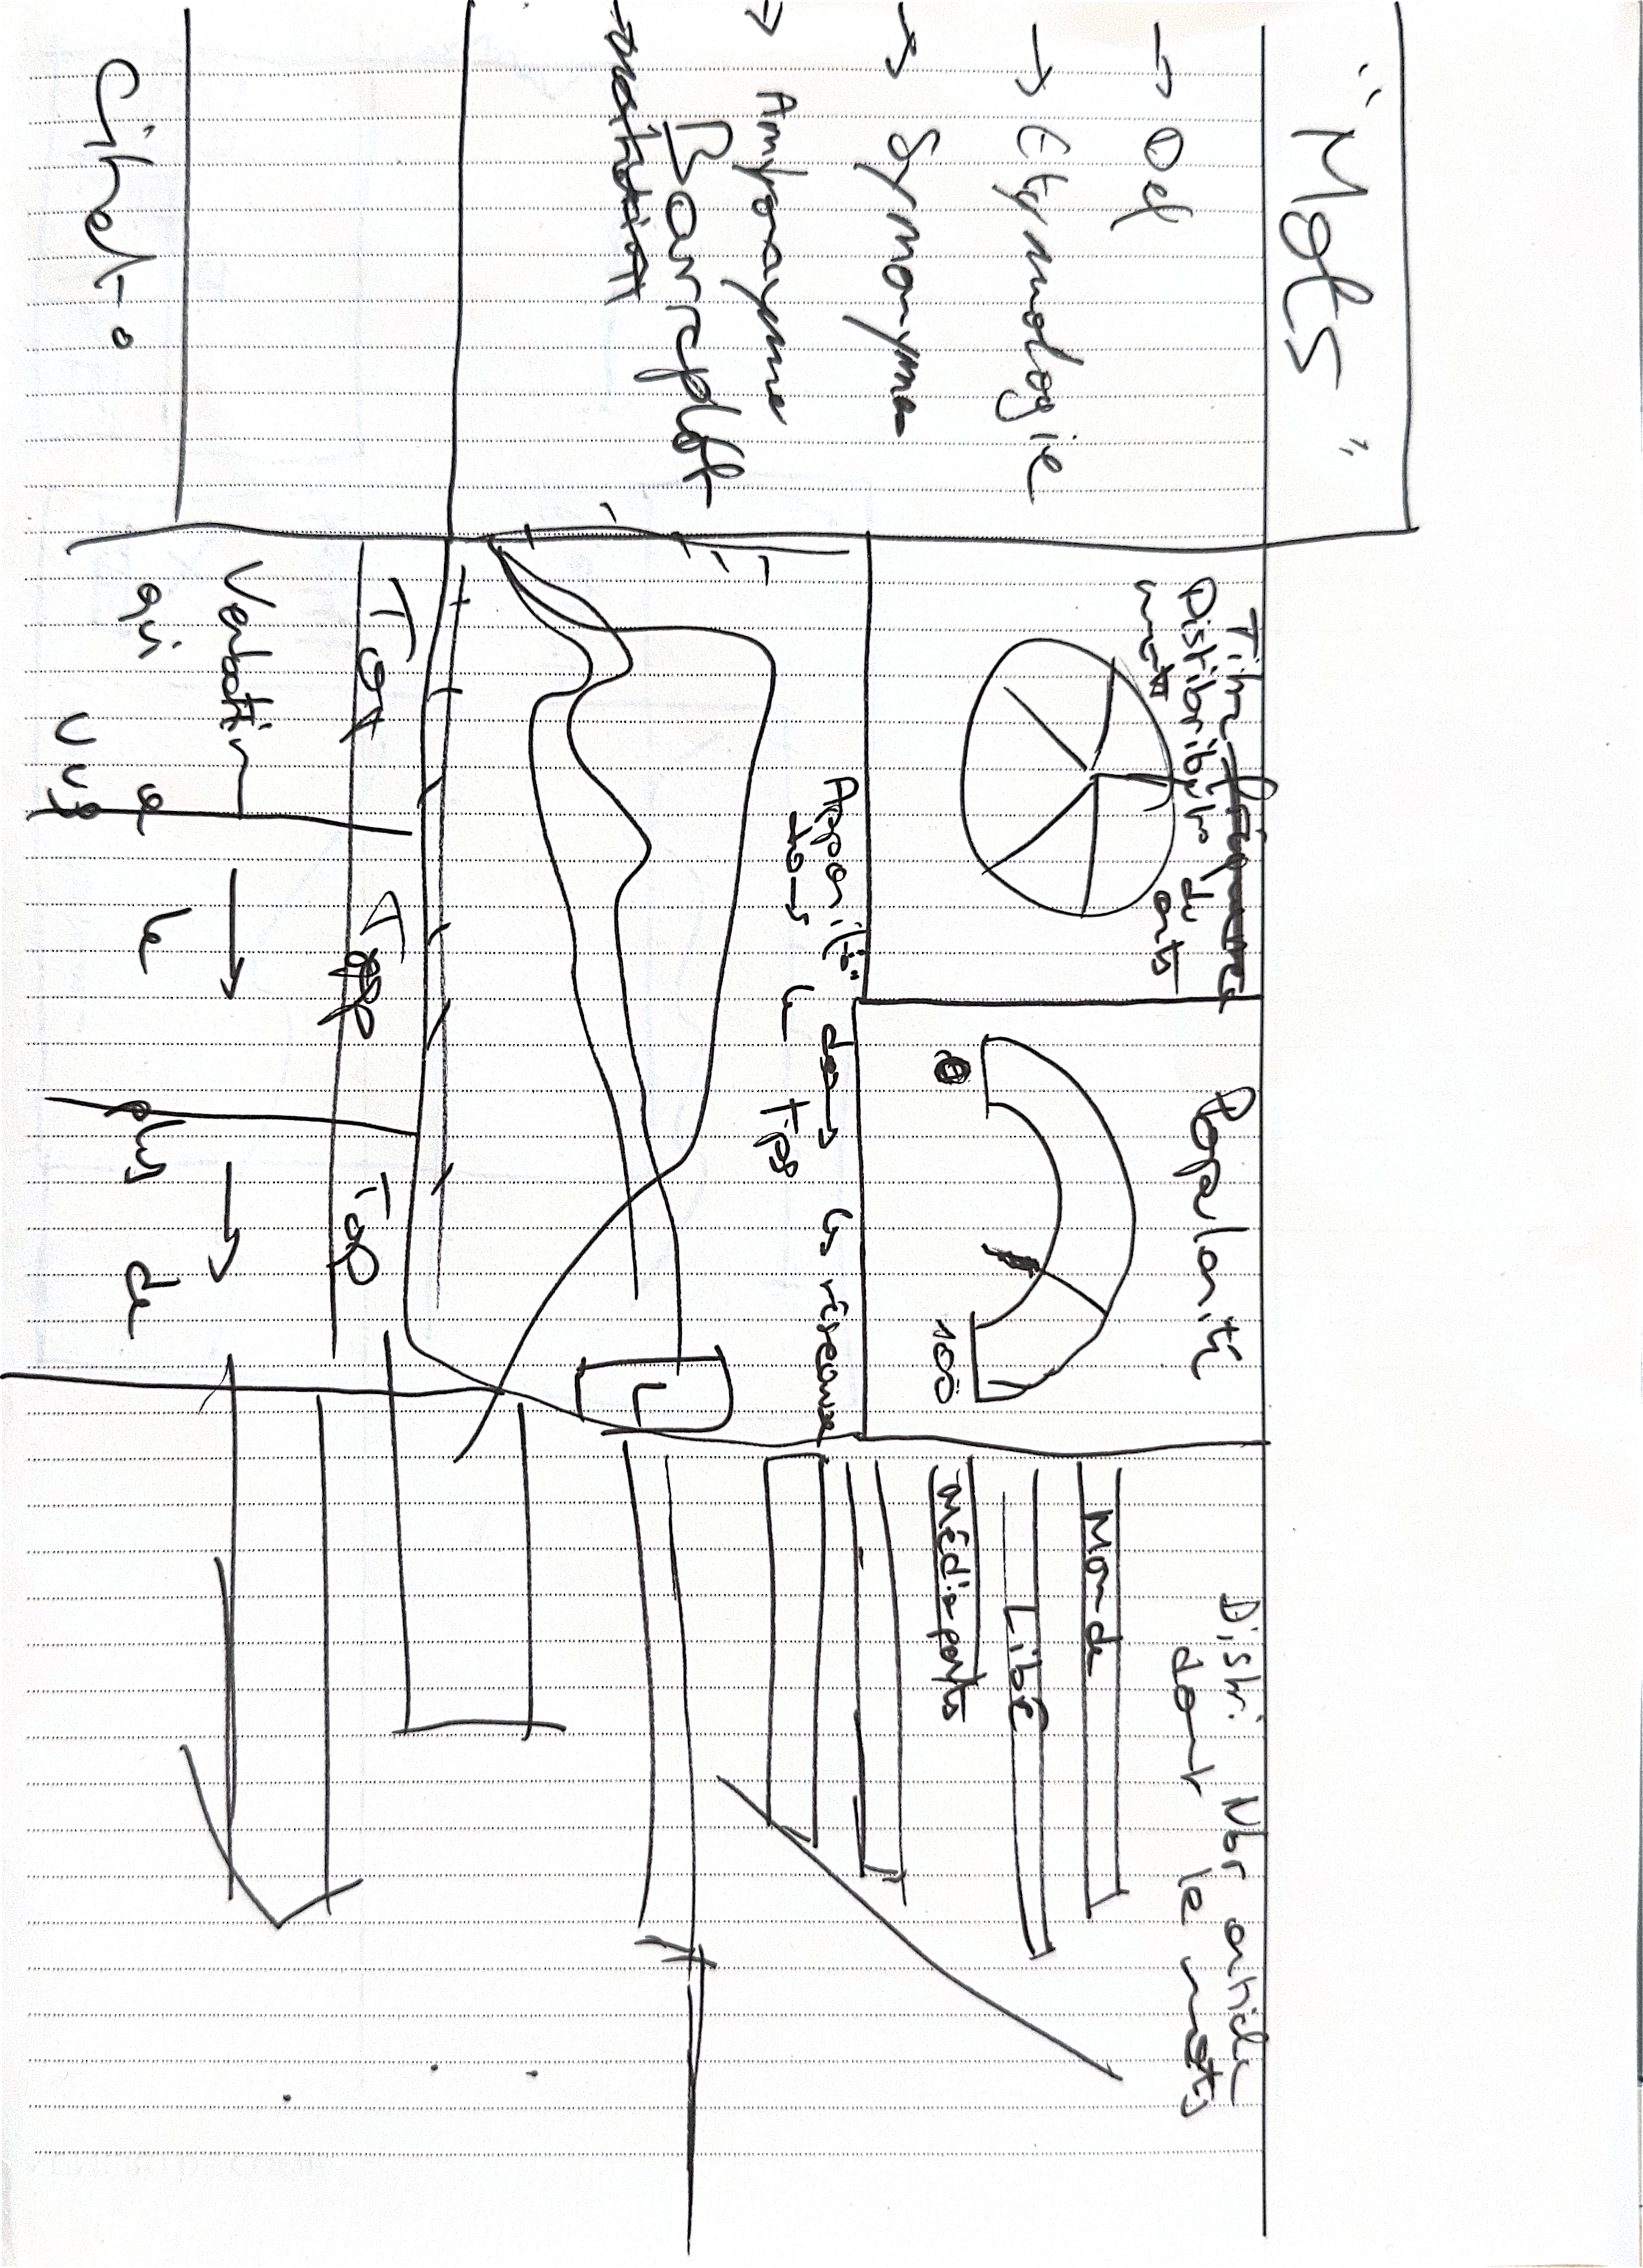 "Mots"
→ Def
→ Etymologie
→ Synonyme
→ Antonayme
Barreplot
Citat°
Titre fréquence
Distibributo du
mots
Popularité
0
100
Distri Nbr article
dont le mots
Monde
Libé
Médiaparts
Apparit° dans les réseaux
dans le tps
L
Top
Top
Top
Verbatim → →
qui a le plus de
vus